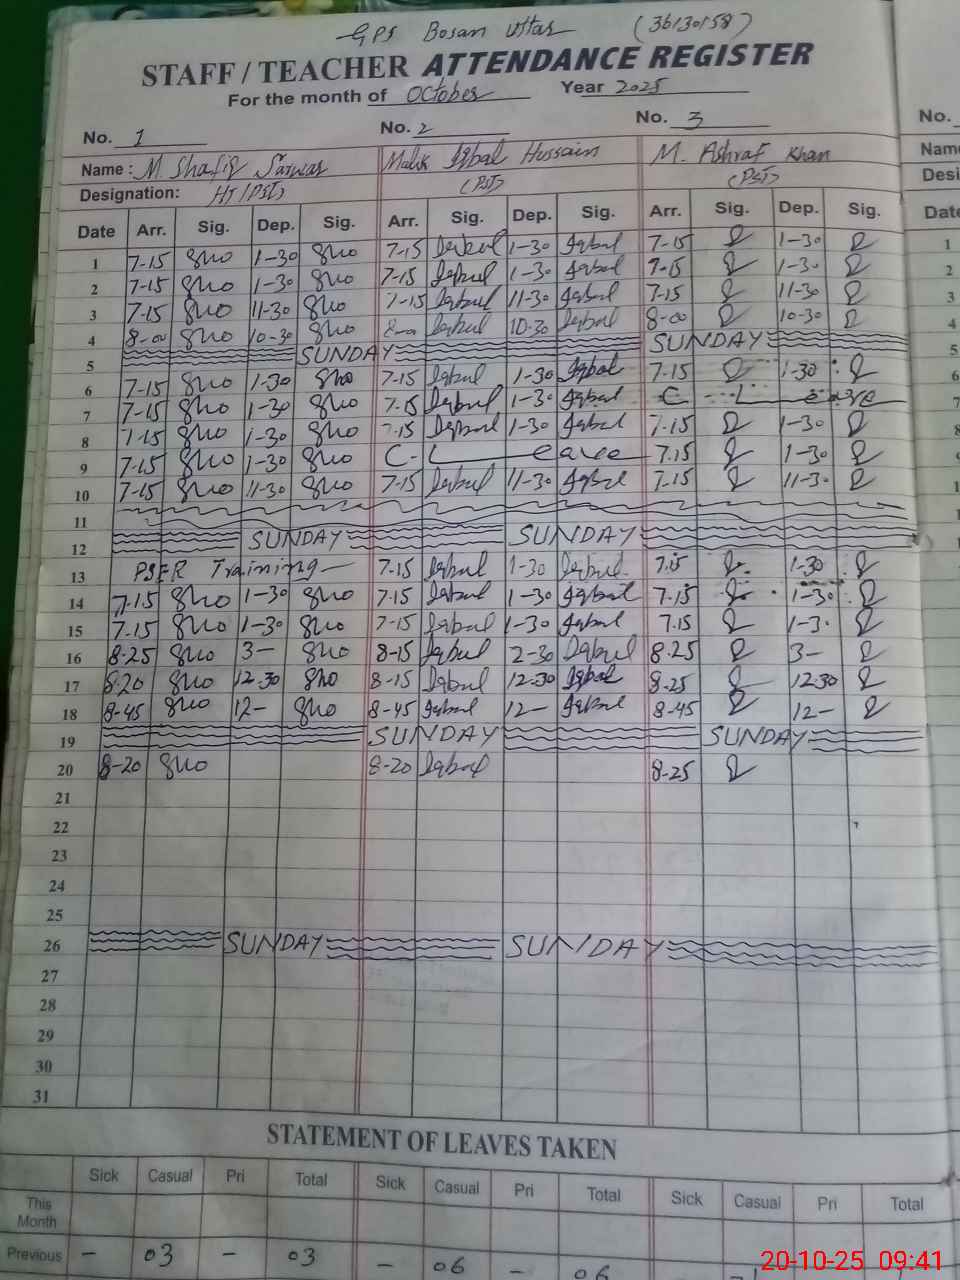 GPS Bosan Uttar (36130158)
STAFF / TEACHER ATTENDANCE REGISTER
For the month of October Year 2025
No. 1 No. 2 No. 3 No.
Name : M. Shafiq Sarwar Malik Iqbal Hussain M. Ashraf Khan Name
Designation: HT (PST) (PST) (PST) Desi
Date Arr. Sig. Dep. Sig. Arr. Sig. Dep. Sig. Arr. Sig. Dep. Sig. Date
1 7-15 1-30 7-15 Iqbal 1-30 Iqbal 7-15 1-30 1
2 7-15 1-30 7-15 Iqbal 1-30 Iqbal 7-15 1-30 2
3 7-15 11-30 7-15 Iqbal 11-30 Iqbal 7-15 11-30 3
4 8-00 10-30 8-00 Iqbal 10-30 Iqbal 8-00 10-30 4
5 SUNDAY SUNDAY 5
6 7-15 1-30 7-15 Iqbal 1-30 Iqbal 7-15 1-30 6
7 7-15 1-30 7-15 Iqbal 1-30 Iqbal C L eave 7
8 7-15 1-30 7-15 Iqbal 1-30 Iqbal 7-15 1-30 8
9 7-15 1-30 C-L eave 7.15 1-30 9
10 7-15 11-30 7-15 Iqbal 11-30 Iqbal 7-15 11-30
11
12 SUNDAY SUNDAY
13 Training 7-15 Iqbal 1-30 Iqbal 7.15 1-30
14 7-15 1-30 7-15 Iqbal 1-30 Iqbal 7-15 1-30
15 7-15 1-30 7-15 Iqbal 1-30 Iqbal 7.15 1-30
16 8-25 3- 8-15 Iqbal 2-30 Iqbal 8.25 3-
17 8-20 12-30 8-15 Iqbal 12-30 Iqbal 8-25 12-30
18 8-45 12- 8-45 Iqbal 12- Iqbal 8-45 12-
19 SUNDAY SUNDAY
20 8-20 8-20 Iqbal 8-25
21
22
23
24
25
26 SUNDAY SUNDAY
27
28
29
30
31
STATEMENT OF LEAVES TAKEN
Sick Casual Pri Total Sick Casual Pri Total Sick Casual Pri Total
This Month
Previous - 03 - 03 - 06 - 06
20-10-25 09:41